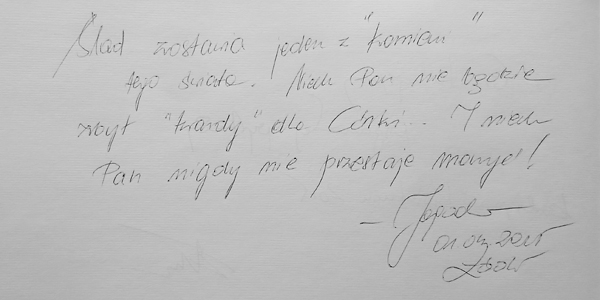 Ślad zostawia jeden z "kamieni"
tego świata. Niech Pan nie będzie
zbyt "twardy" dla Córki... I niech
Pan nigdy nie przestaje marzyć!
- Jagoda